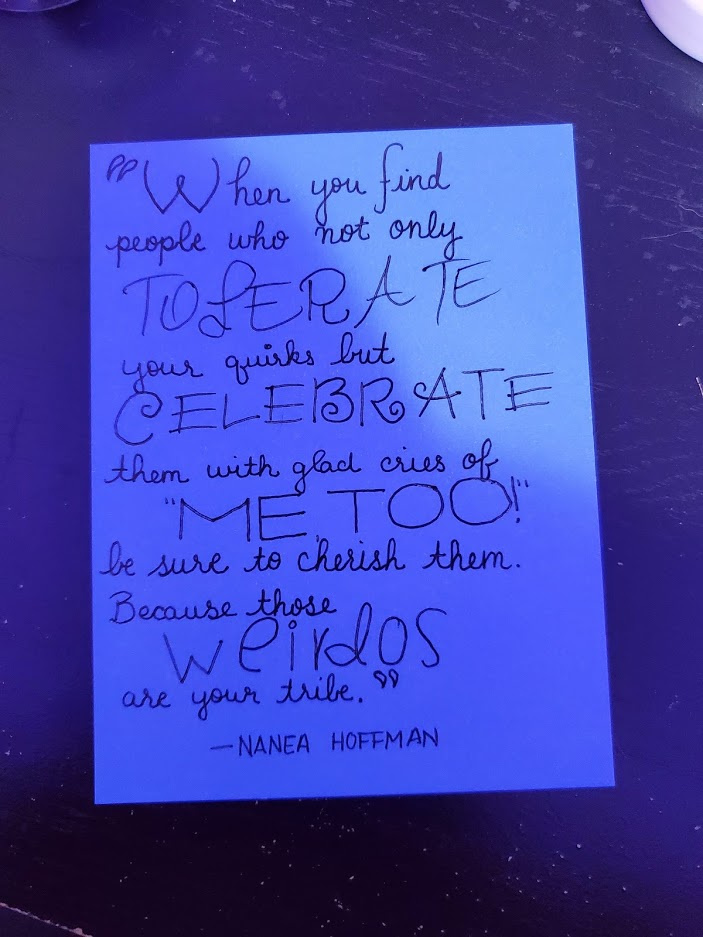 "When you find
people who not only
TOLERATE
your quirks but
CELEBRATE
them with glad cries of
"ME TOO!"
be sure to cherish them.
Because those
weirdos
are your tribe."
—NANEA HOFFMAN